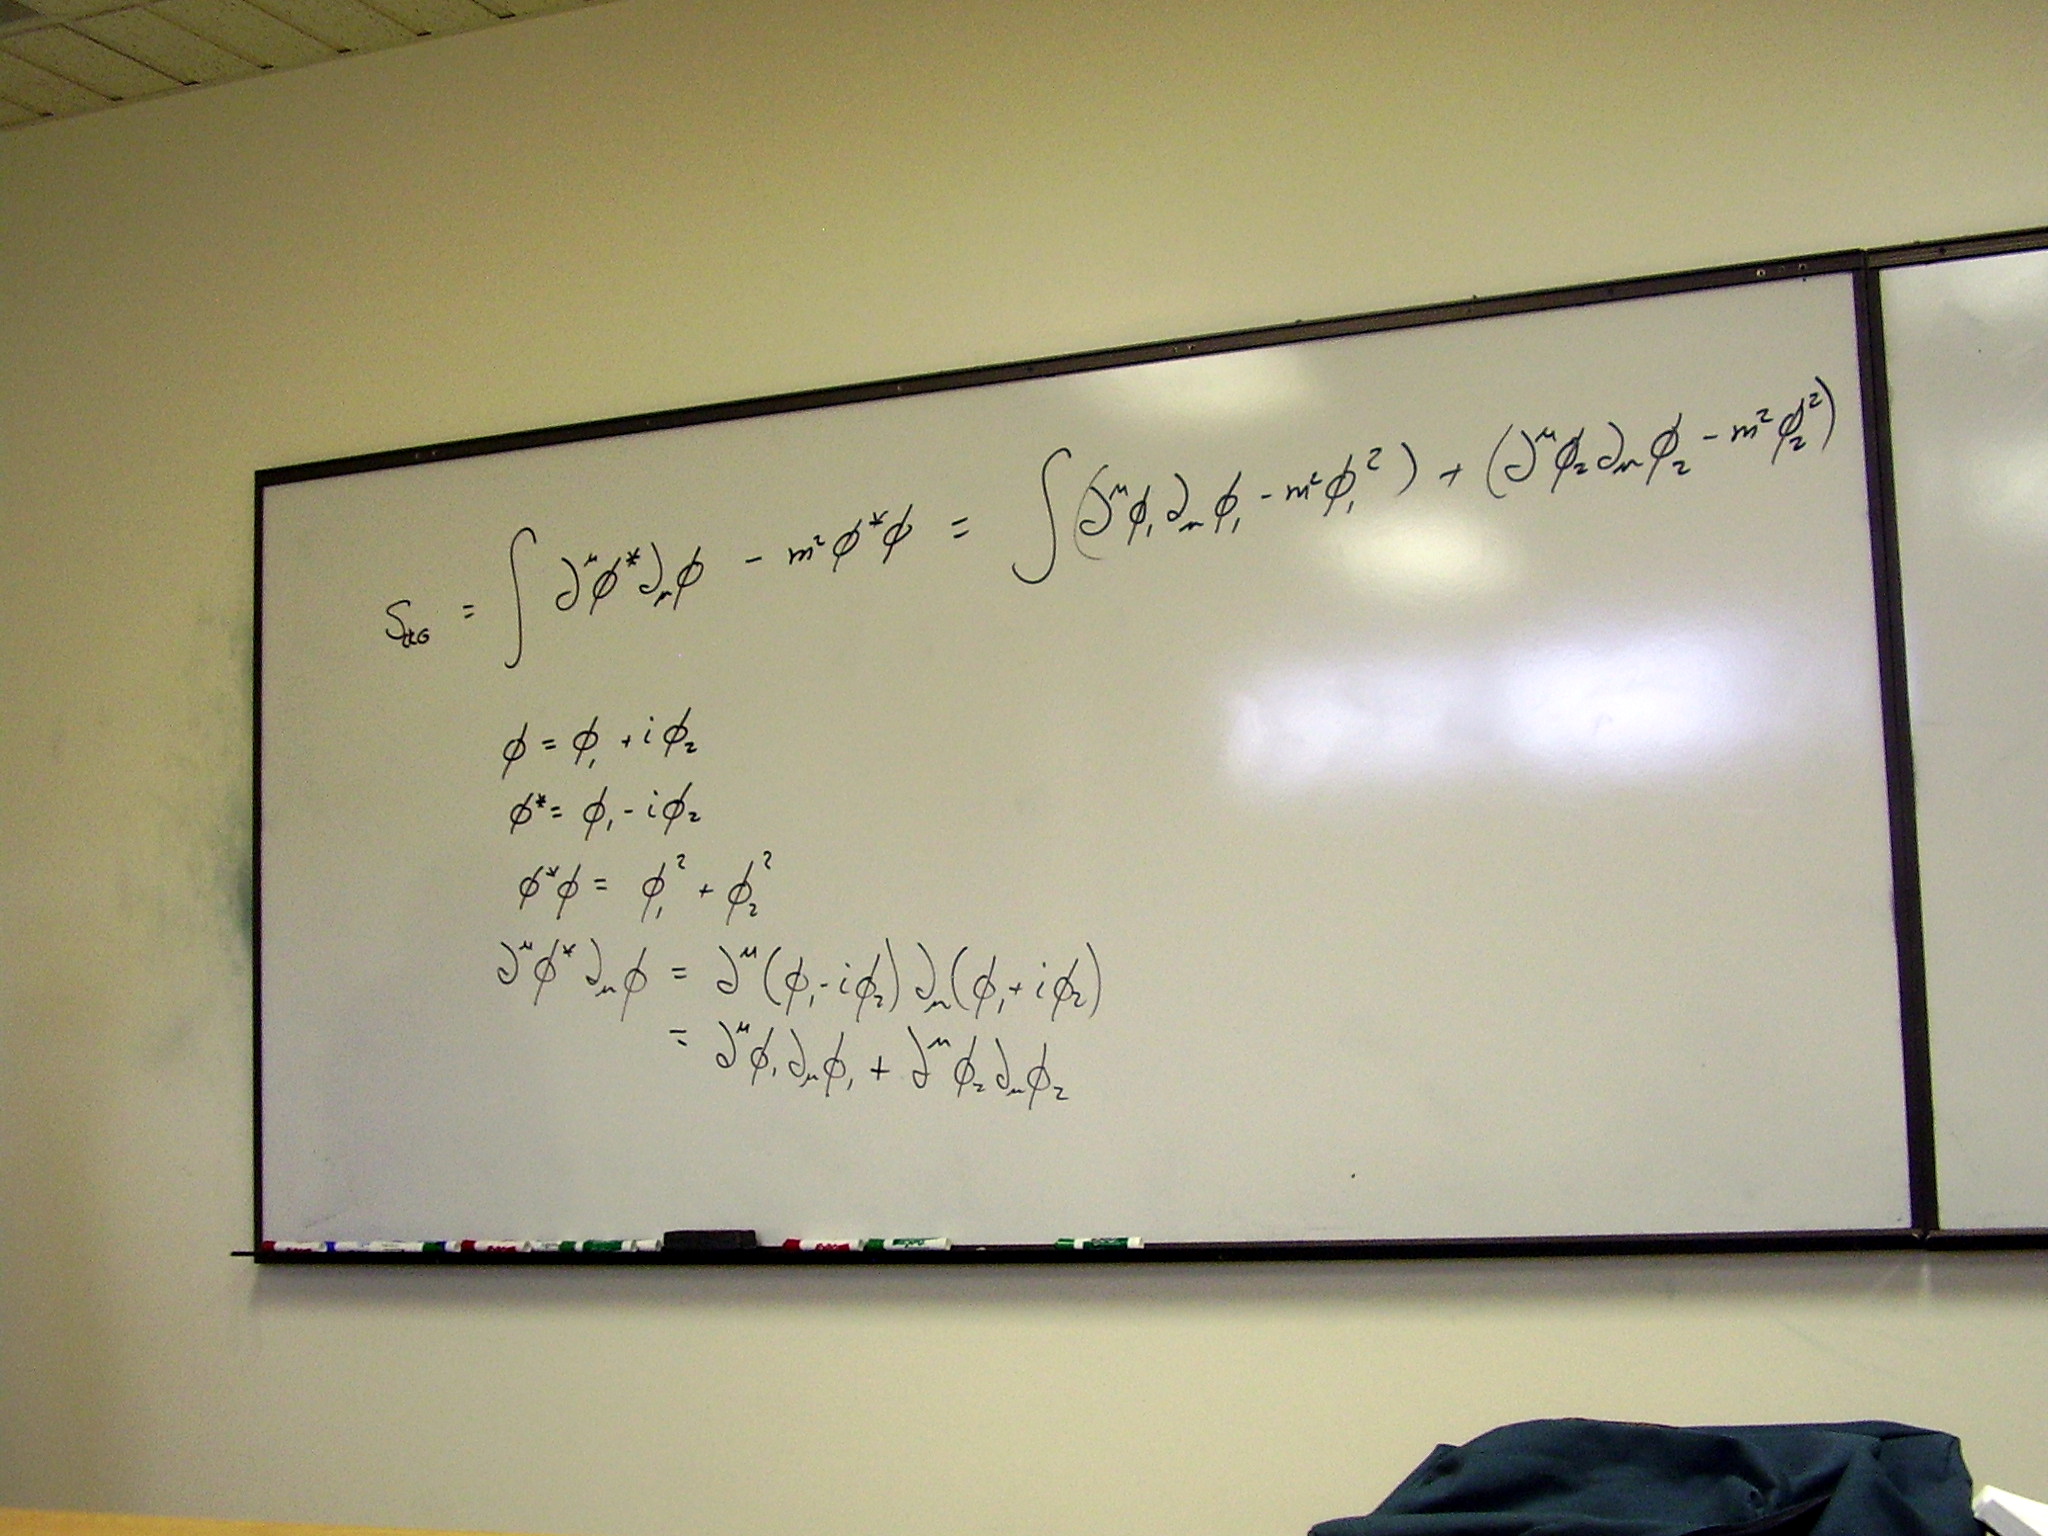 S_{CKG} = ∫ ∂^μ φ* ∂_μ φ - m² φ*φ = ∫ (∂^μ φ₁ ∂_μ φ₁ - m² φ₁²) + (∂^μ φ₂ ∂_μ φ₂ - m² φ₂²)
φ = φ₁ + i φ₂
φ* = φ₁ - i φ₂
φ*φ = φ₁² + φ₂²
∂^μ φ* ∂_μ φ = ∂^μ (φ₁ - i φ₂) ∂_μ (φ₁ + i φ₂)
= ∂^μ φ₁ ∂_μ φ₁ + ∂^μ φ₂ ∂_μ φ₂